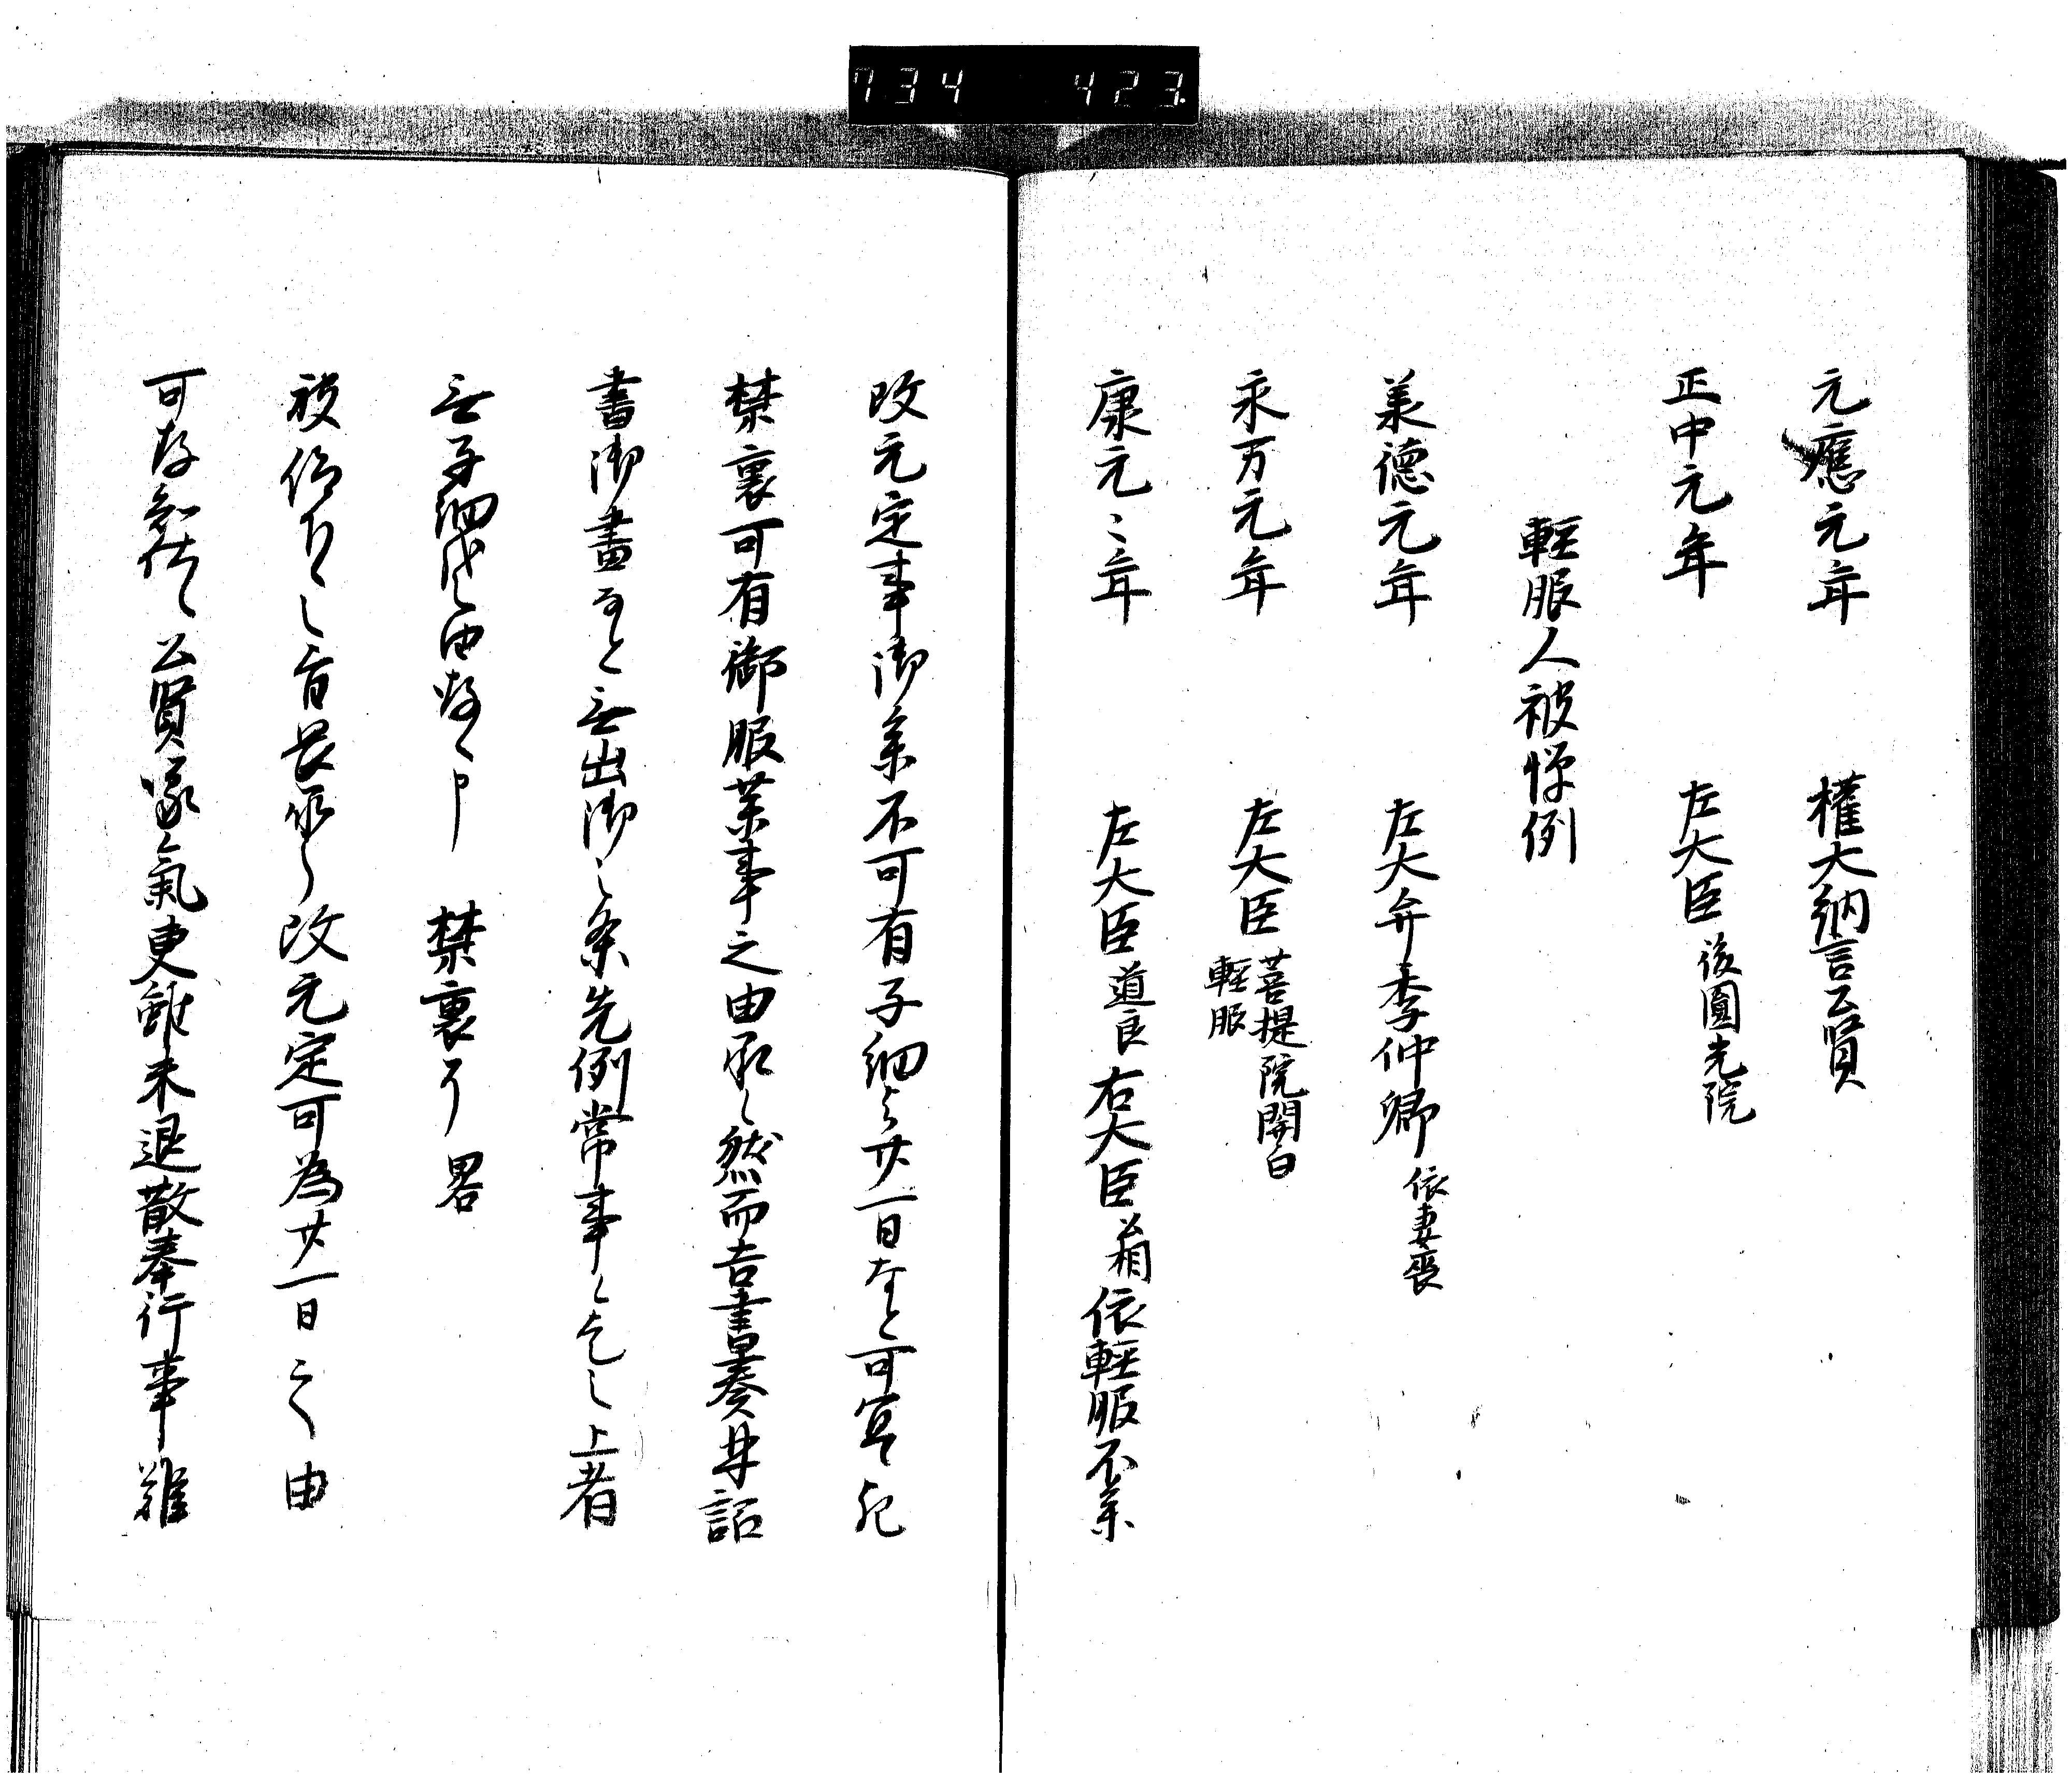 734 423
元應元年 權大納言公賢
正中元年 左大臣 後圓光院
輕服人被憚例
承德元年 左大弁季仲卿 依妻喪
永万元年 左大臣 菩提院関白
輕服
康元ゝ年 左大臣道良右大臣公相依輕服不参
改元定事御参不可有子細候廿一日など可宜候
禁裏可有御服薬事之由承候然而吉書奏并詔
書御畫等無出御之条先例常事候之上者
無子細候由存候
禁裏 畧
被仰下之旨畏承候改元定可為廿一日之由
可存知仕候公賢 氣更雖未退散奉行事難